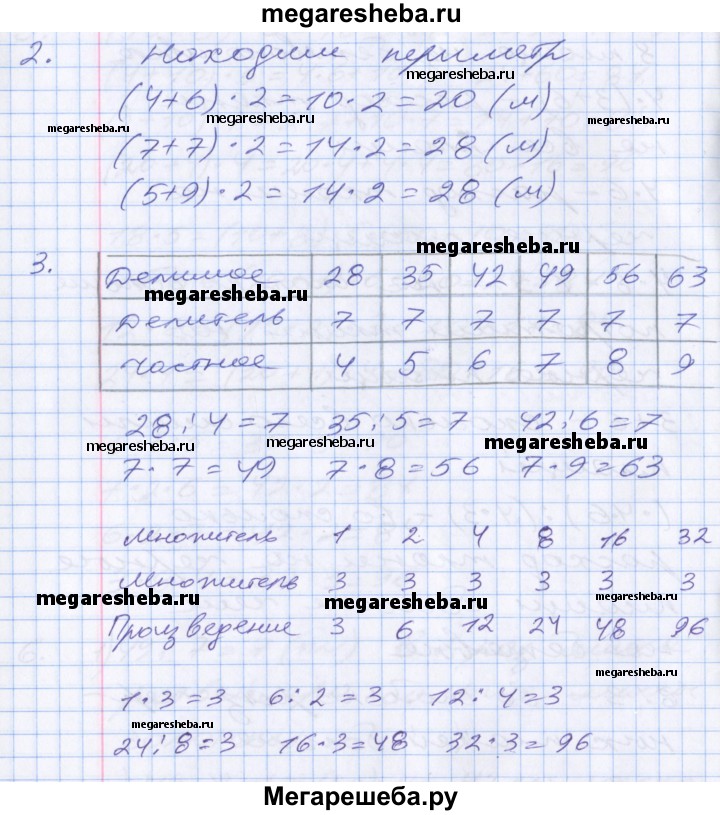 megaresheba.ru
2. Находим периметр
megaresheba.ru
(4+6)·2=10·2=20 (м)
megaresheba.ru megaresheba.ru megaresheba.ru
(7+7)·2=14·2=28 (м)
(5+9)·2=14·2=28 (м)
megaresheba.ru
3. Делимое 28 35 42 49 56 63
megaresheba.ru
Делитель 7 7 7 7 7 7
Частное 4 5 6 7 8 9
28:4=7 35:5=7 42:6=7
megaresheba.ru megaresheba.ru megaresheba.ru
7·7=49 7·8=56 7·9=63
Множитель 1 2 4 8 16 32
Множитель 3 3 3 3 3 3
megaresheba.ru megaresheba.ru megaresheba.ru
Произведение 3 6 12 24 48 96
megaresheba.ru
1·3=3 6:2=3 12:4=3
megaresheba.ru megaresheba.ru
24:8=3 16·3=48 32·3=96
Мегарешеба.ру